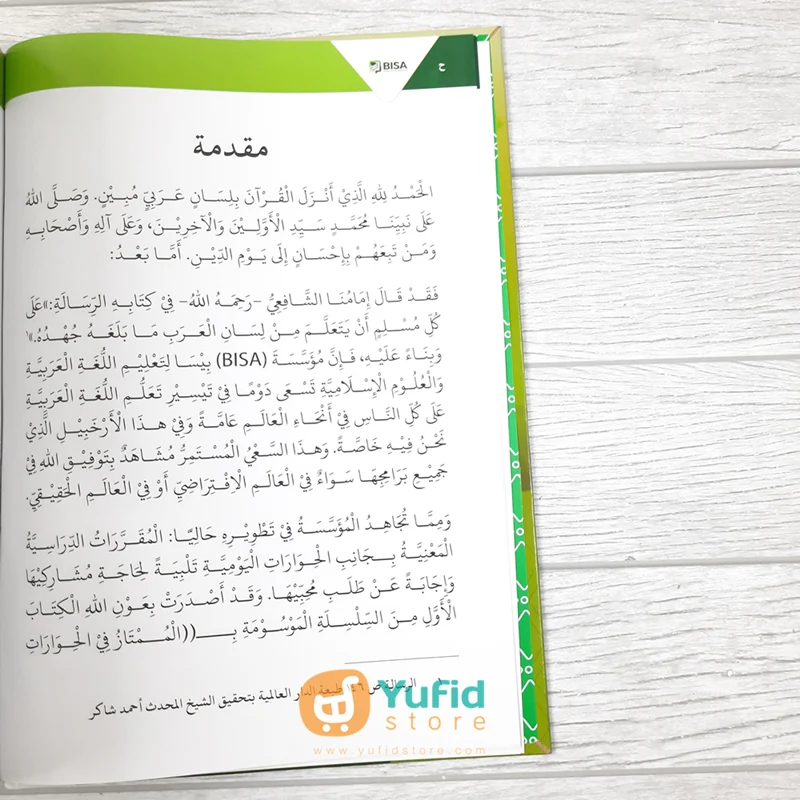 BISA
ح
مقدمة
الْحَمْدُ لِلهِ الَّذِيْ أَنْزَلَ الْقُرْآنَ بِلِسَانٍ عَرَبِيٍّ مُبِيْنٍ. وَصَلَّى اللهُ
عَلَى نَبِيِّنَا مُحَمَّدٍ سَيِّدِ الْأَوَّلِيْنَ وَالْآخِرِيْنَ، وَعَلَى آلِهِ وَأَصْحَابِهِ
وَمَنْ تَبِعَهُمْ بِإِحْسَانٍ إِلَى يَوْمِ الدِّيْنِ. أَمَّا بَعْدُ:
فَقَدْ قَالَ إِمَامُنَا الشَّافِعِيُّ -رَحِمَهُ اللهُ- فِيْ كِتَابِهِ الرِّسَالَةِ:»عَلَى
كُلِّ مُسْلِمٍ أَنْ يَتَعَلَّمَ مِنْ لِسَانِ الْعَرَبِ مَا بَلَغَهُ جُهْدُهُ.«١
وَبِنَاءً عَلَيْهِ، فَإِنَّ مُؤَسَّسَةَ (BISA) بِيْسَا لِتَعْلِيْمِ اللُّغَةِ الْعَرَبِيَّةِ
وَالْعُلُوْمِ الْإِسْلَامِيَّةِ تَسْعَى دَوْمًا فِيْ تَيْسِيْرِ تَعَلُّمِ اللُّغَةِ الْعَرَبِيَّةِ
عَلَى كُلِّ النَّاسِ فِيْ أَنْحَاءِ الْعَالَمِ عَامَّةً وَفِيْ هذَا الْأَرْخَبِيْلِ الَّذِيْ
نَحْنُ فِيْهِ خَاصَّةً. وَهذَا السَّعْيُ الْمُسْتَمِرُّ مُشَاهَدٌ بِتَوْفِيْقِ اللهِ فِيْ
جَمِيْعِ بَرَامِجِهَا سَوَاءٌ فِيْ الْعَالَمِ الْاِفْتِرَاضِيِّ أَوْ فِيْ الْعَالَمِ الْحَقِيْقِيِّ.
وَمِمَّا تُجَاهِدُ الْمُؤَسَّسَةُ فِيْ تَطْوِيْرِهِ حَالِيًّا: الْمُقَرَّرَاتُ الدِّرَاسِيَّةُ
الْمَعْنِيَّةُ بِجَانِبِ الْحِوَارَاتِ الْيَوْمِيَّةِ تَلْبِيَةً لِحَاجَةِ مُشَارِكِيْهَا
وَإِجَابَةً عَنْ طَلَبِ مُحِبِّيْهَا. وَقَدْ أَصْدَرَتْ بِعَوْنِ اللهِ الْكِتَابَ
الْأَوَّلَ مِنَ السِّلْسِلَةِ الْمَوْسُوْمَةِ بِـ((الْمُمْتَازُ فِيْ الْحِوَارَاتِ
١ الرسالة ص ١٤٦ طبعة الدار العالمية بتحقيق الشيخ المحدث أحمد شاكر
Yufid
store
www.yufidstore.com